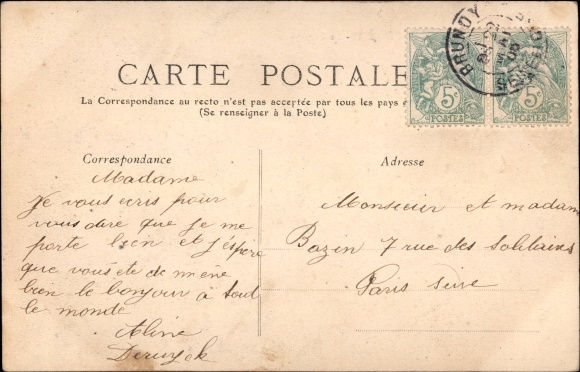 CARTE POSTALE
La Correspondance au recto n'est pas acceptée par tous les pays é
(Se renseigner à la Poste)
BRUNOY
5c
POSTES
5c
POSTES
Correspondance
Madame
Je vous ecris pour
vous dire que je me
porte bien et j'éspère
que vous éte de même
bien le bonjour à tout
le monde
Aline
Deruyck
Adresse
Monsieur et madam
Bazin 7 rue des Solitaires
Paris